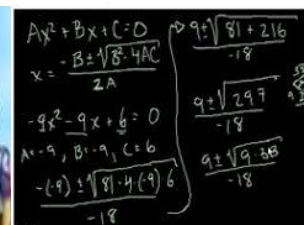 Ax² + Bx + C = 0
x = -B ± √B² - 4AC
2A
-9x² - 9x + 6 = 0
A = -9, B = -9, C = 6
-(-9) ± √81 - 4·(-9) 6
-18
9 ± √81 + 216
-18
9 ± √297
-18
9 ± √9 ·
-18